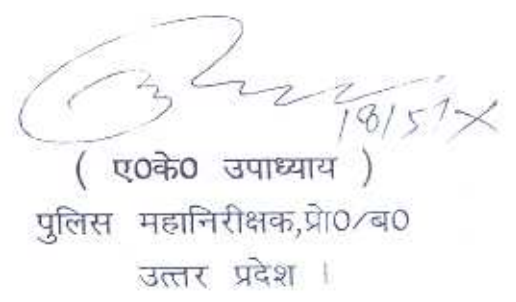 ( ए0के0 उपाध्याय )
पुलिस महानिरीक्षक,प्रो0/ब0
उत्तर प्रदेश ।